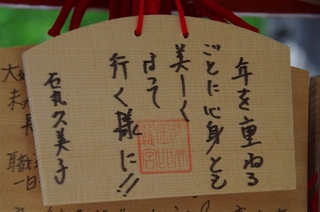 年を重ねる
ごとに心身とも
美しく
なって
行く様に!!
石丸久美子
大
未
職
一日